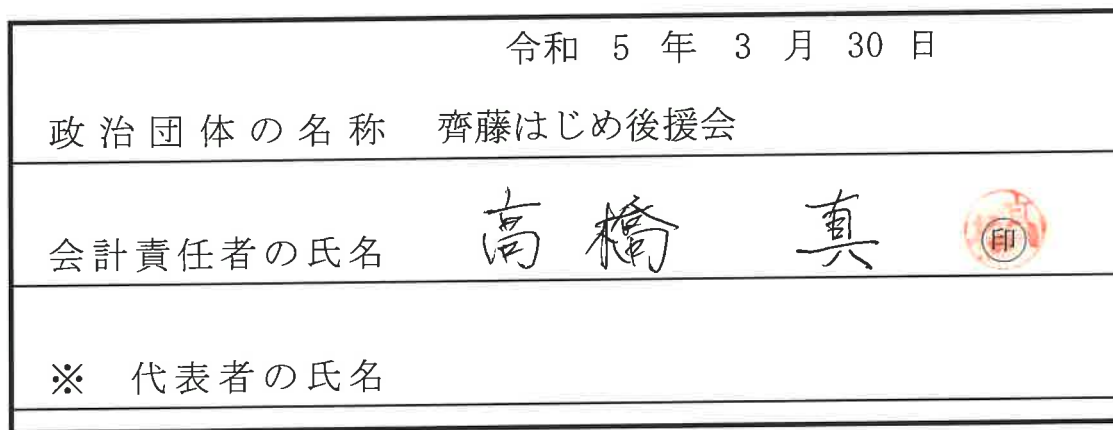 令和 5 年 3 月 30 日
政治団体の名称 齊藤はじめ後援会
会計責任者の氏名 高橋 真 印
※ 代表者の氏名